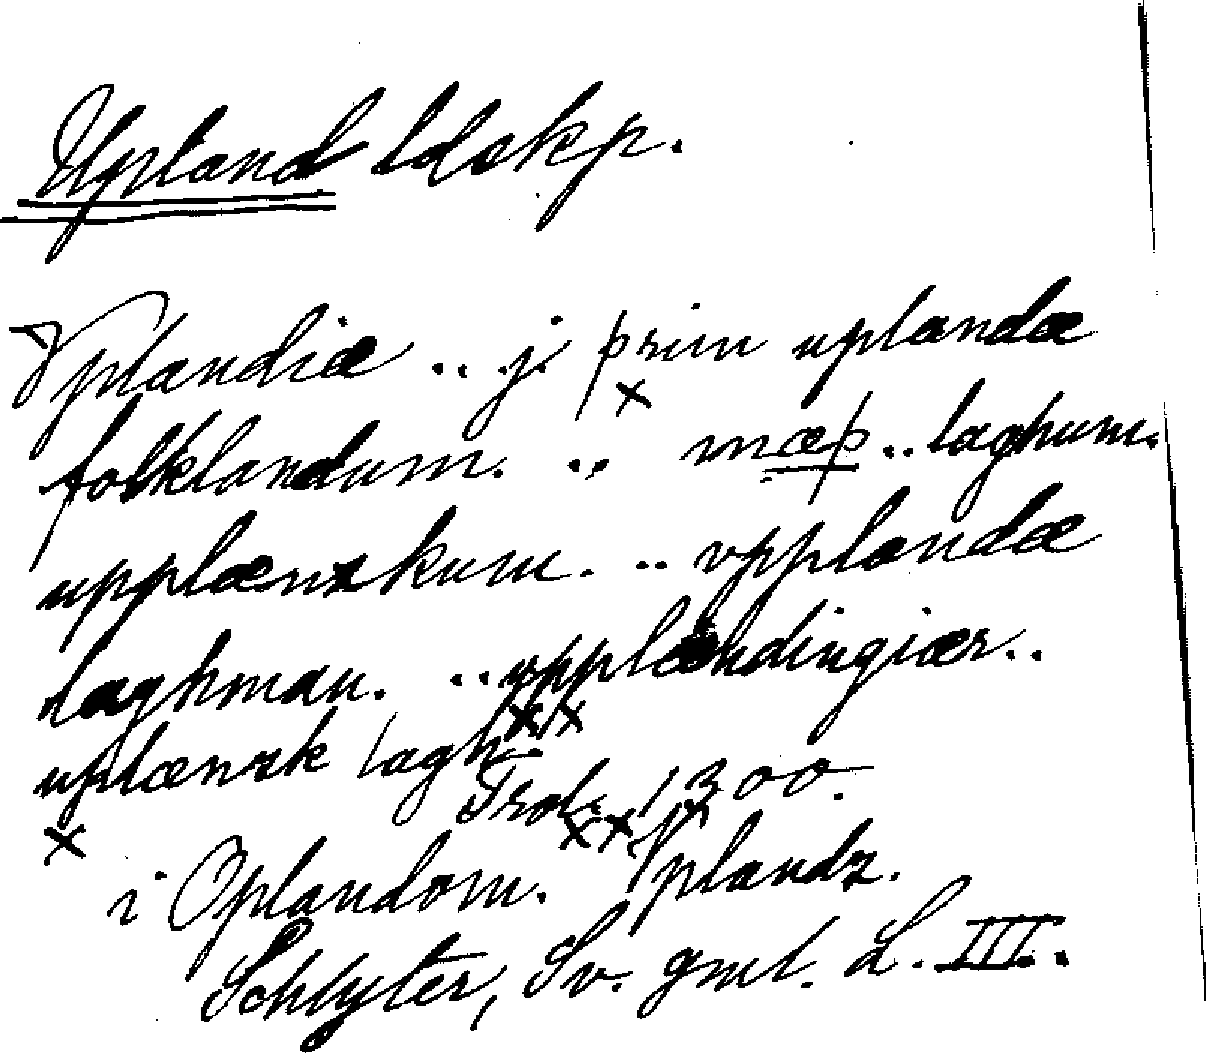 Upland ldskp.
Vplandiæ .. j. þrim uplandæ
folklandum. .. mæþ .. laghum.
upplænzkum. .. vpplandæ
laghman. .. upplændingiær ..
uplænsk lagh.
1300.
i Oplandom. Vplandz.
Schlyter, Sv. gml. L. III.